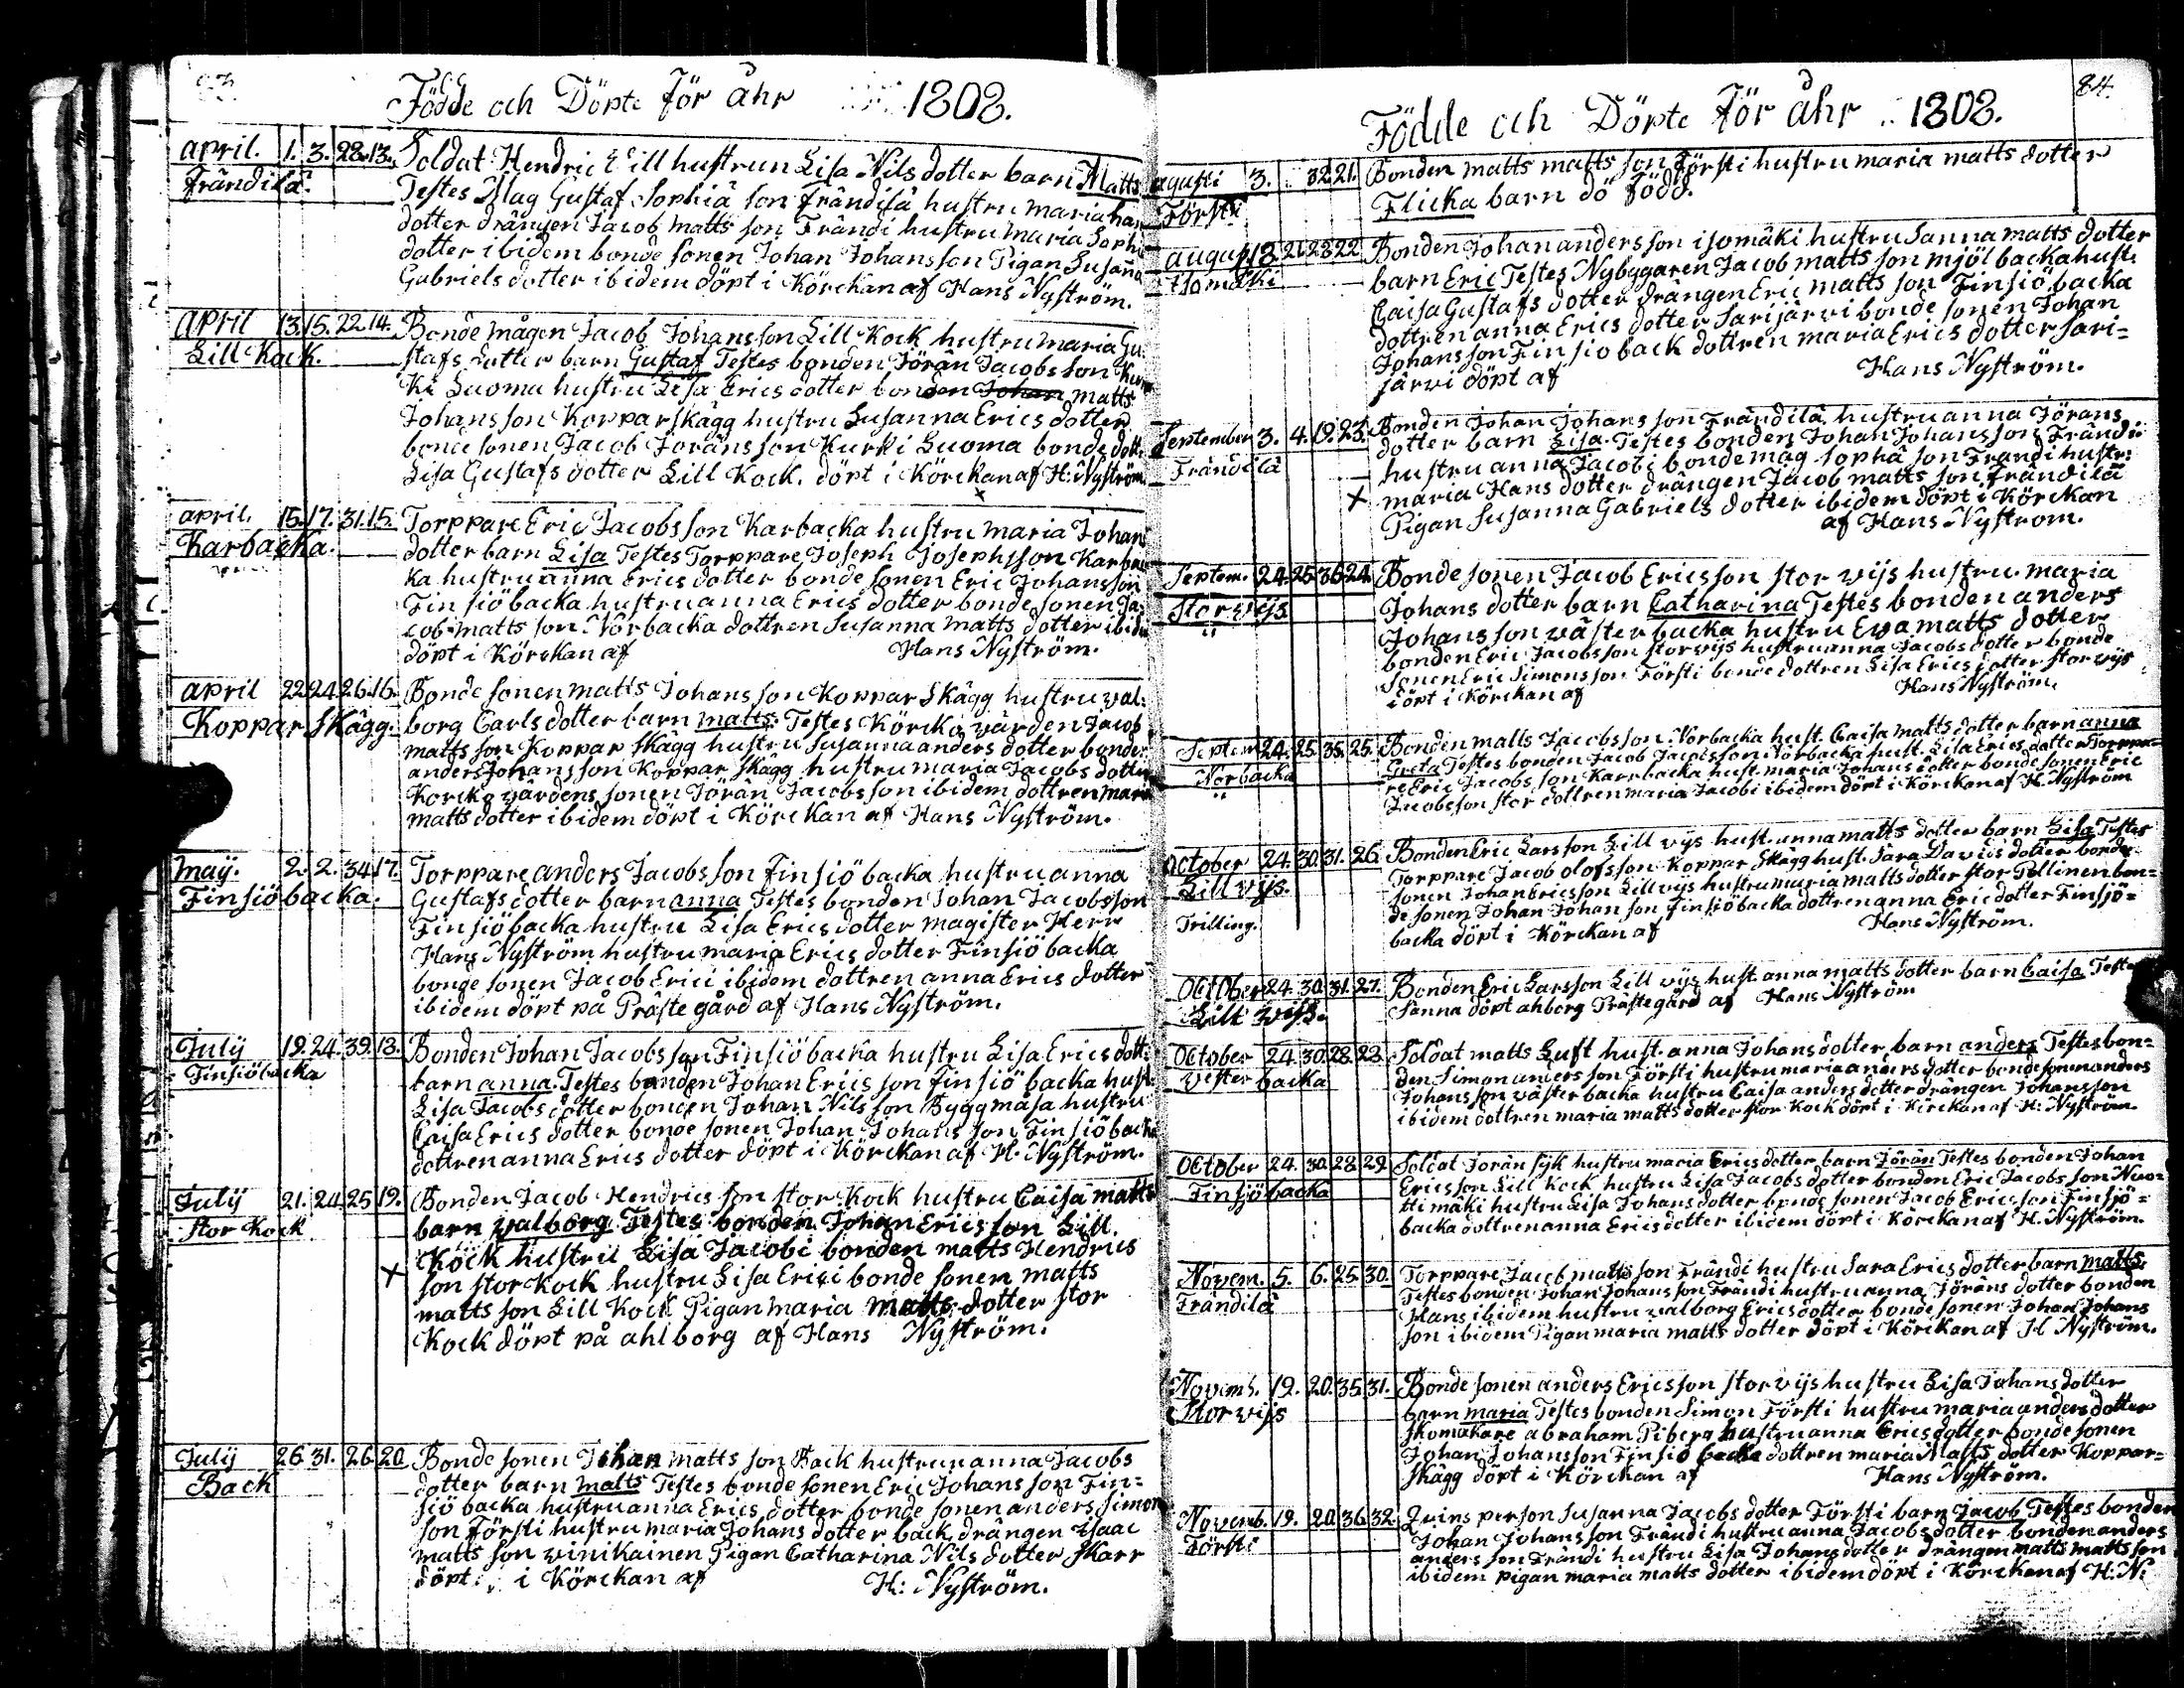 83
Födde och Döpte för åhr 1808.
april. 1. 3. 28. 13. Soldat Hendric Lill hustrun Lisa Nils dotter barn Matts
Frändilä. Testes Mag Gustaf Sophiä son frändilä hustru maria han
dotter drängen Jacob matts son Frändi hustru maria Soph
dotter ibidem bonde sonen Johan Johansson Pigan Susanna
Gabriels dotter ibidem döpt i Körckan af Hans Nyström.
april 13. 15. 22. 14. Bonde mågen Jacob Johansson Lill Kock hustru maria Gu-
Lill Kock. stafs dotter barn Gustaf Testes bonden Jörän Jacobsson Kur
Ki Luoma hustru Lisa Erics dotter bonden Johan matts
Johansson Kopparskägg hustru Susanna Erics dotter
bonde sonen Jacob Joränsson Kurki Luoma bonde dott
Lisa Gustafs dotter Lill Kock. döpt i Körckan af H: Nyström
april. 15. 17. 31. 15. Torppare Eric Jacobsson Karbacka hustru maria Johan
Karbacka. dotter barn Lisa Testes Torppare Joseph Josephsson Karbac
ka hustru anna Erics dotter bonde sonen Eric Johansson
Finsiöbacka hustru anna Erics dotter bonde sonen Ja-
cob matts son Norbacka dottren Susanna matts dotter ibide
döpt i Körckan af Hans Nyström.
april 22. 24. 26. 16. Bonde sonen matts Johansson Koppar Skägg hustru val-
Koppar Skägg. borg Carls dotter barn matts. Testes Körckovärden Jacob
matts son Koppar Skägg hustru Susanna anders dotter bonde
anders Johansson Koppar Skägg hustru maria Jacobs dotter
Korckovärdens sonen Jöran Jacobsson ibidem dottren mari
matts dotter ibidem döpt i Körckan af Hans Nyström.
maij. 2. 2. 34. 17. Torppare anders Jacobsson Finsiöbacka hustru anna
Finsiöbacka. Gustafs dotter barn anna Testes bonden Johan Jacobsson
Finsiöbacka hustru Lisa Erics dotter magister Herr
Hans Nyström hustru maria Erics dotter Finsiöbacka
bonde sonen Jacob Erici ibidem dottren anna Erics dotter
ibidem döpt på Präste gård af Hans Nyström.
Julij 19. 24. 39. 18. Bonden Johan Jacobsson Finsiöbacka hustru Lisa Erics dott:
Finsiöbacka barn anna. Testes bonden Johan Ericsson finsiöbacka hust:
Lisa Jacobs dotter bonden Johan Nilsson Byggmäsa hustru
Caisa Erics dotter bonde sonen Johan Johansson Finsiöbacka
dottren anna Erics dotter döpt i Körckan af H. Nyström.
Julij 21. 24. 25. 19. Bonden Jacob Hendricsson stor Kock hustru Caisa matts
Stor Kock barn valborg Testes bonden Johan Ericsson Lill
Kock hustru Lisa Jacobi bonden matts Hendrics
+ son stor Kock hustru Lisa Erici bonde sonen matts
matts son Lill Kock Pigan maria matts dotter stor
Kock döpt på ahlborg af Hans Nyström.
Julij 26. 31. 26. 20. Bonde sonen Johan matts son Back hustrun anna Jacobs
Back dotter barn matts Testes bonde sonen Eric Johansson Fin-
siöbacka hustru anna Erics dotter bonde sonen anders simon
son Försti hustru maria Johans dotter back drängen isaac
matts son vinikainen Pigan Catharina Nils dotter Skarr
döpt i Körckan af H: Nyström.
84.
Födde och Döpte för åhr 1808.
agusti 3. 32. 21. Bonden matts matts son Försti hustru maria matts dotter
Försti Flicka barn dö född.
august 18. 21. 28. 22. Bonden Johan andersson isomäki hustru Sanna matts dotter
isomäki barn Eric Testes Nybyggaren Jacob matts son mjölbacka hust:
Caisa Gustafs dotter drängen Eric matts son Finsiöbacka
dottren anna Erics dotter Sarijärvi bonde sonen Johan
Johansson Finsioback dottren maria Erics dotter sari-
järvi döpt af Hans Nyström.
September 3. 4. 19. 23. Bonden Johan Johansson Frändilä hustru anna Jörans
Frändilä dotter barn Lisa. Testes bonden Johan Johansson Frändi
hustru anna Jacobi bondemåg sophä son Frandi hustr:
+ maria Hans dotter drängen Jacob matts son Frändilä
Pigan Susanna Gabriels dotter ibidem döpt i Körckan
af Hans Nyström.
Septem. 24. 25. 36. 24. Bonde sonen Jacob Ericsson stor vijs hustru maria
Stor vijs Johans dotter barn Catharina Testes bonden anders
Johansson väster backa hustru Eva matts dotter
bonden Eric Jacobsson stor vijs hustru anna Jacobs dotter bonde
sonen Eric Simonsson Försti bonde dottren Lisa Erics dotter stor vijs
döpt i Körckan af Hans Nyström.
Septem 24. 25. 35. 25. Bonden matts Jacobsson Norbacka hust. Caisa matts dotter barn anna
Norbacka Greta Testes bonden Jacob Jacobsson Norbacka hust. Lisa Erics dotter Torppa-
re Eric Jacobsson Karrbacka hust. maria Johans dotter bonde sonen Eric
Jacobsson stor dottren maria Jacobi ibidem döpt i Körckan af H. Nyström
October 24. 30. 31. 26. Bonden Eric Larsson Lill vijs hust. anna matts dotter barn Lisa Testes
Lill vijs. Torppare Jacob olofsson Koppar Skägg hust. Sara Davids dotter bonde
sonen Johan Ericsson Lill vijs hustru maria matts dotter stor Pollinen bon-
Trilling. de sonen Johan Johansson Finsiöbacka dottren anna Eric dotter Finsjö-
backa döpt i Körckan af Hans Nyström.
October 24. 30. 31. 27. Bonden Eric Larsson Lill vijs hust. anna matts dotter barn Caisa Testes
Lill vijs. Sanna döpt ahborg Prästegård af Hans Nyström
October 24. 30. 28. 28. Soldat matts Luft hust. anna Johans dotter barn anders Testes bon-
vester backa den Simon anders son Försti hustru maria anders dotter bonde sonen anders
Johansson väster backa hustru Caisa anders dotter drängen Johansson
ibidem dottren maria matts dotter stor Kock döpt i Körckan af H: Nyström.
October 24. 30. 28. 29. Soldat Jorän sÿk hustru maria Erics dotter barn Jörän Testes bonden Johan
Finsjöbacka Ericsson Lill Kock hustru Lisa Jacobs dotter bonden Eric Jacobsson Nuo-
ttimäki hustru Lisa Johans dotter bonde sonen Jacob Ericsson Finsjö-
backa dottren anna Erics dotter ibidem döpt i Körckan af H. Nyström.
Novem. 5. 6. 25. 30. Torppare Jacob matts son Frändi hustru Sara Erics dotter barn matts.
Frändilä Testes bonden Johan Johansson Frändi hustru anna Jöräns dotter bonden
Hans ibidem hustru valborg Erics dotter bonde sonen Johan Johans
son ibidem Pigan maria matts dotter döpt i Körckan af H Nyström.
Novemb. 19. 20. 35. 31. Bonde sonen anders Ericsson stor vijs hustru Lisa Johans dotter
Stor vijs barn maria Testes bonden Simon Försti hustru maria anders dotter
Skomakare abraham Piberg hustru anna Erics dotter bonde sonen
Johan Johansson Finsiö backa dottren maria Matts dotter Koppar-
skägg döpt i Körckan af Hans Nyström.
Novemb. 19. 20. 36. 32. Quins person Susanna Jacobs dotter Försti barn Jacob Testes bonden
Försti Johan Johansson Frändi hustru anna Jacobs dotter bonden anders
anders son Frändi hustru Lisa Johans dotter drängen matts matts son
ibidem pigan maria matts dotter ibidem döpt i Körckan af H: N: